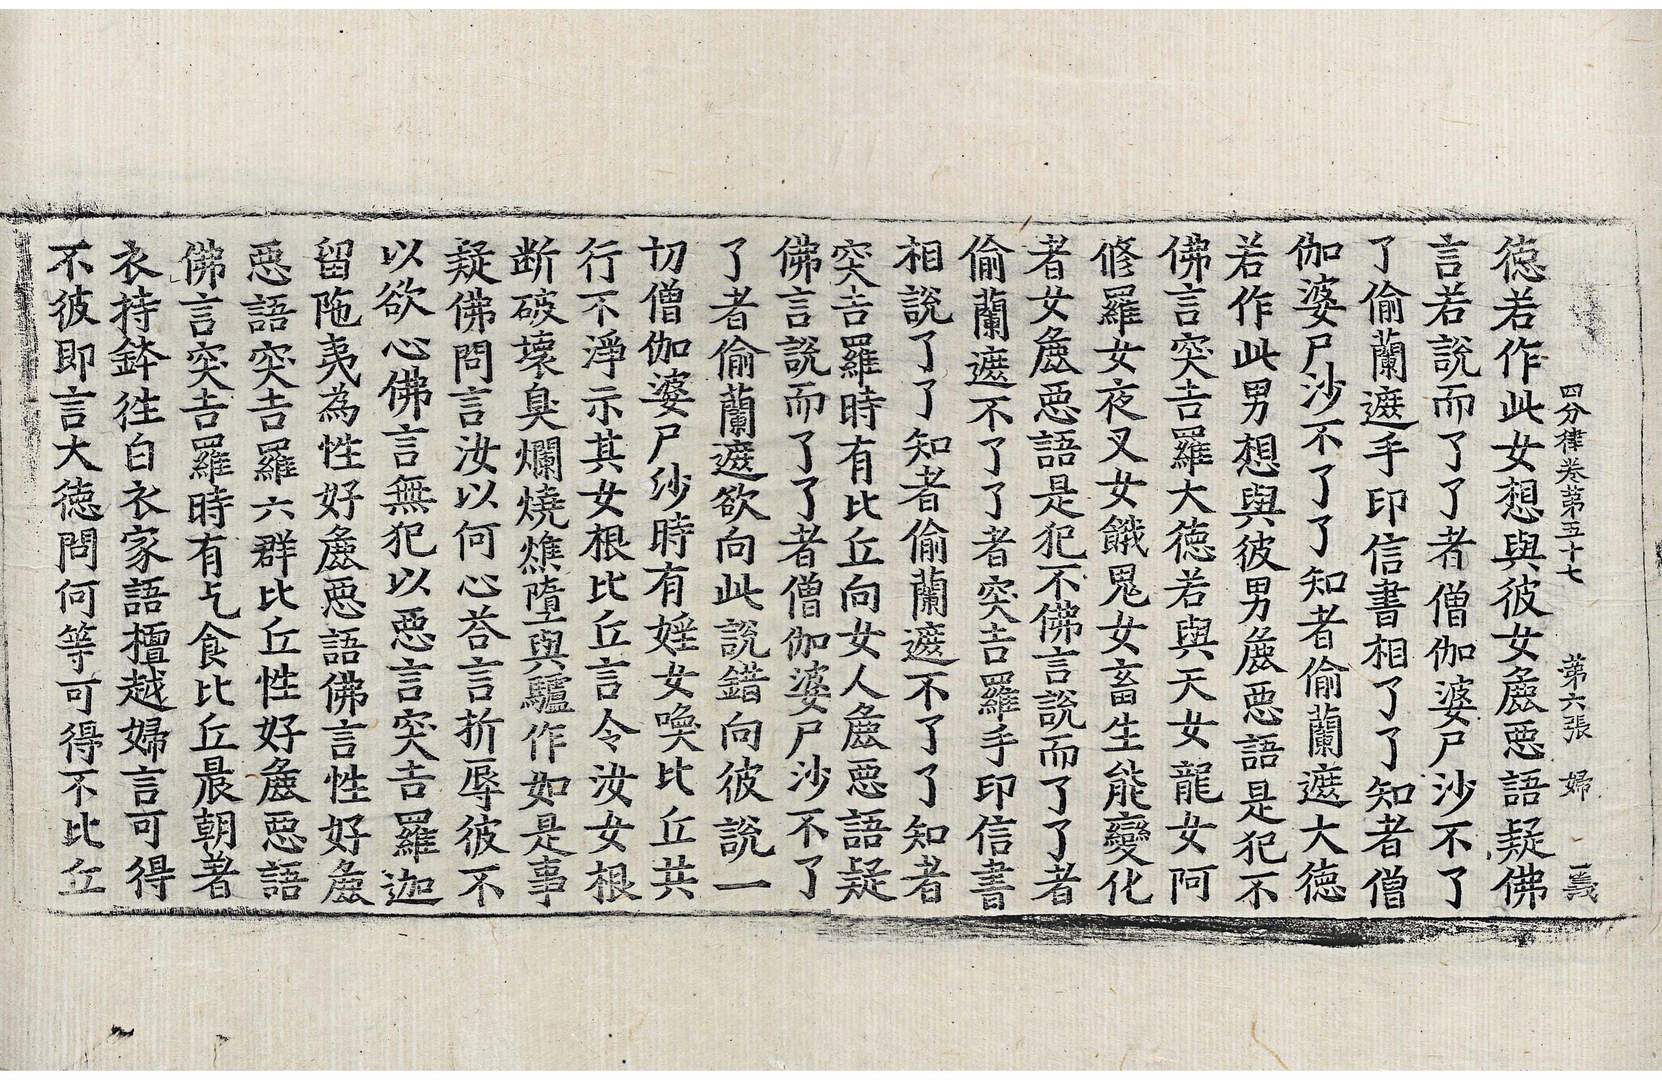 四分律卷苐五十七 苐六張 婦 義
徳若作此女想與彼女麁惡語疑佛
言若說而了了者僧伽婆尸沙不了
了偷蘭遮手印信書相了了知者僧
伽婆尸沙不了了知者偷蘭遮大徳
若作此男想與彼男麁惡語是犯不
佛言突吉羅大徳若與天女龍女阿
修羅女夜叉女餓鬼女畜生能變化
者女麁惡語是犯不佛言說而了了者
偷蘭遮不了了者突吉羅手印信書
相說了了知者偷蘭遮不了了知者
突吉羅時有比丘向女人麁惡語疑
佛言說而了了者僧伽婆尸沙不了
了者偷蘭遮欲向此說錯向彼說一
切僧伽婆尸沙時有婬女喚比丘共
行不淨示其女根比丘言令汝女根
断破壞臭爛燒燋墮與驢作如是事
疑佛問言汝以何心荅言折辱彼不
以欲心佛言無犯以惡言突吉羅迦
留陁夷為性好麁惡語佛言性好麁
惡語突吉羅六群比丘性好麁惡語
佛言突吉羅時有乞食比丘晨朝著
衣持鉢徃白衣家語檀越婦言可得
不彼即言大徳問何等可得不比丘